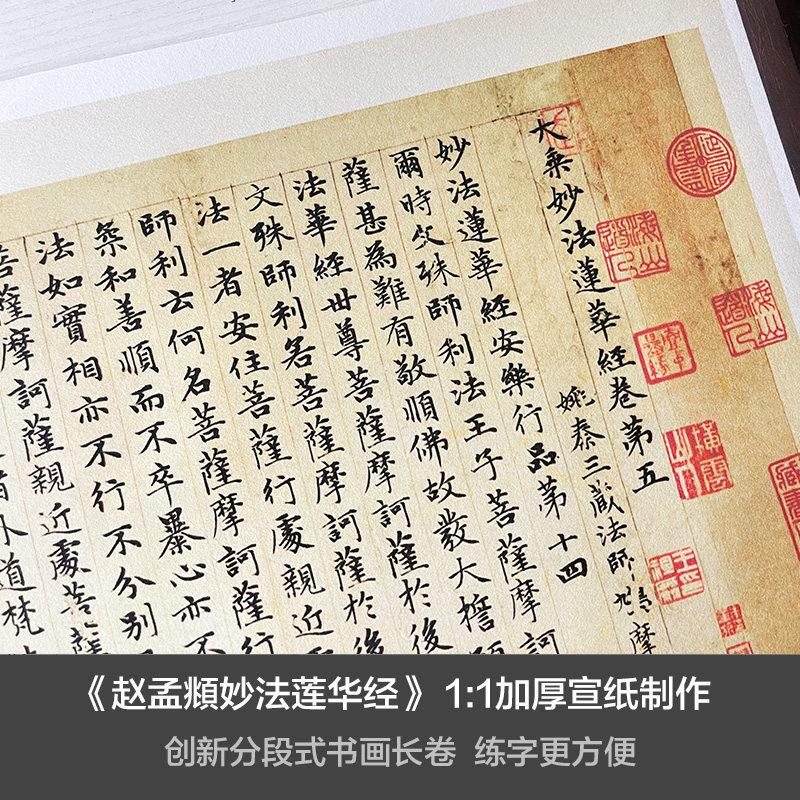 大乘妙法蓮華經卷第五
姚秦三藏法師鳩摩
妙法蓮華經安樂行品第十四
爾時文殊師利法王子菩薩摩訶
薩甚為難有敬順佛故發大誓願
法華經世尊菩薩摩訶薩於後
文殊師利若菩薩摩訶薩於後
法一者安住菩薩行處親近
師利云何名菩薩摩訶薩行
柔和善順而不卒暴心亦不
法如實相亦不行不分別
菩薩摩訶薩親近處菩薩
外道梵
《赵孟頫妙法莲华经》 1:1加厚宣纸制作
创新分段式书画长卷 练字更方便